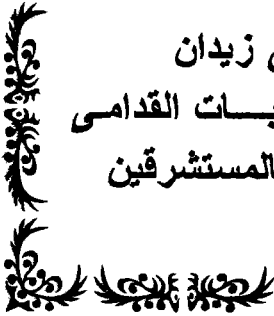 زيدان
القدامى
المستشرقين